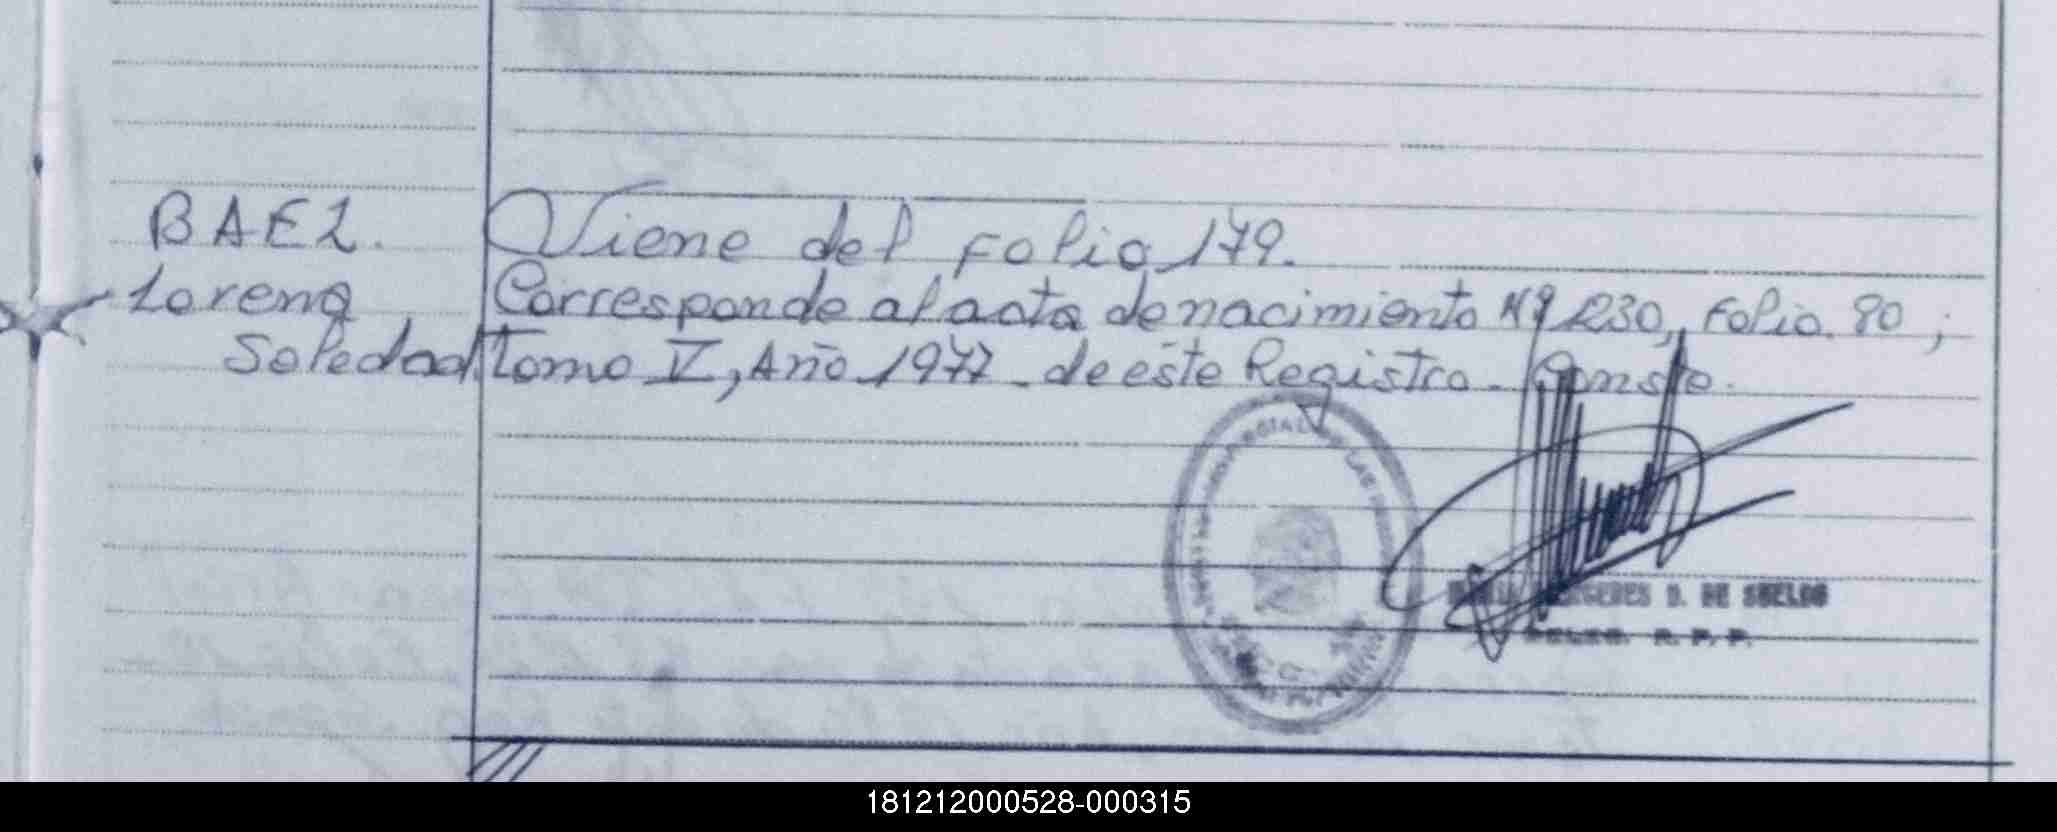 BAEZ.
Lorena
Soledad
Viene del Folio 179.
Corresponde al acta de nacimiento Nº 230, Folio 90;
tomo V, Año 1977 - de este Registro - Conste.
DE LAS
DE SUELDO
R. P. P.
181212000528-000315